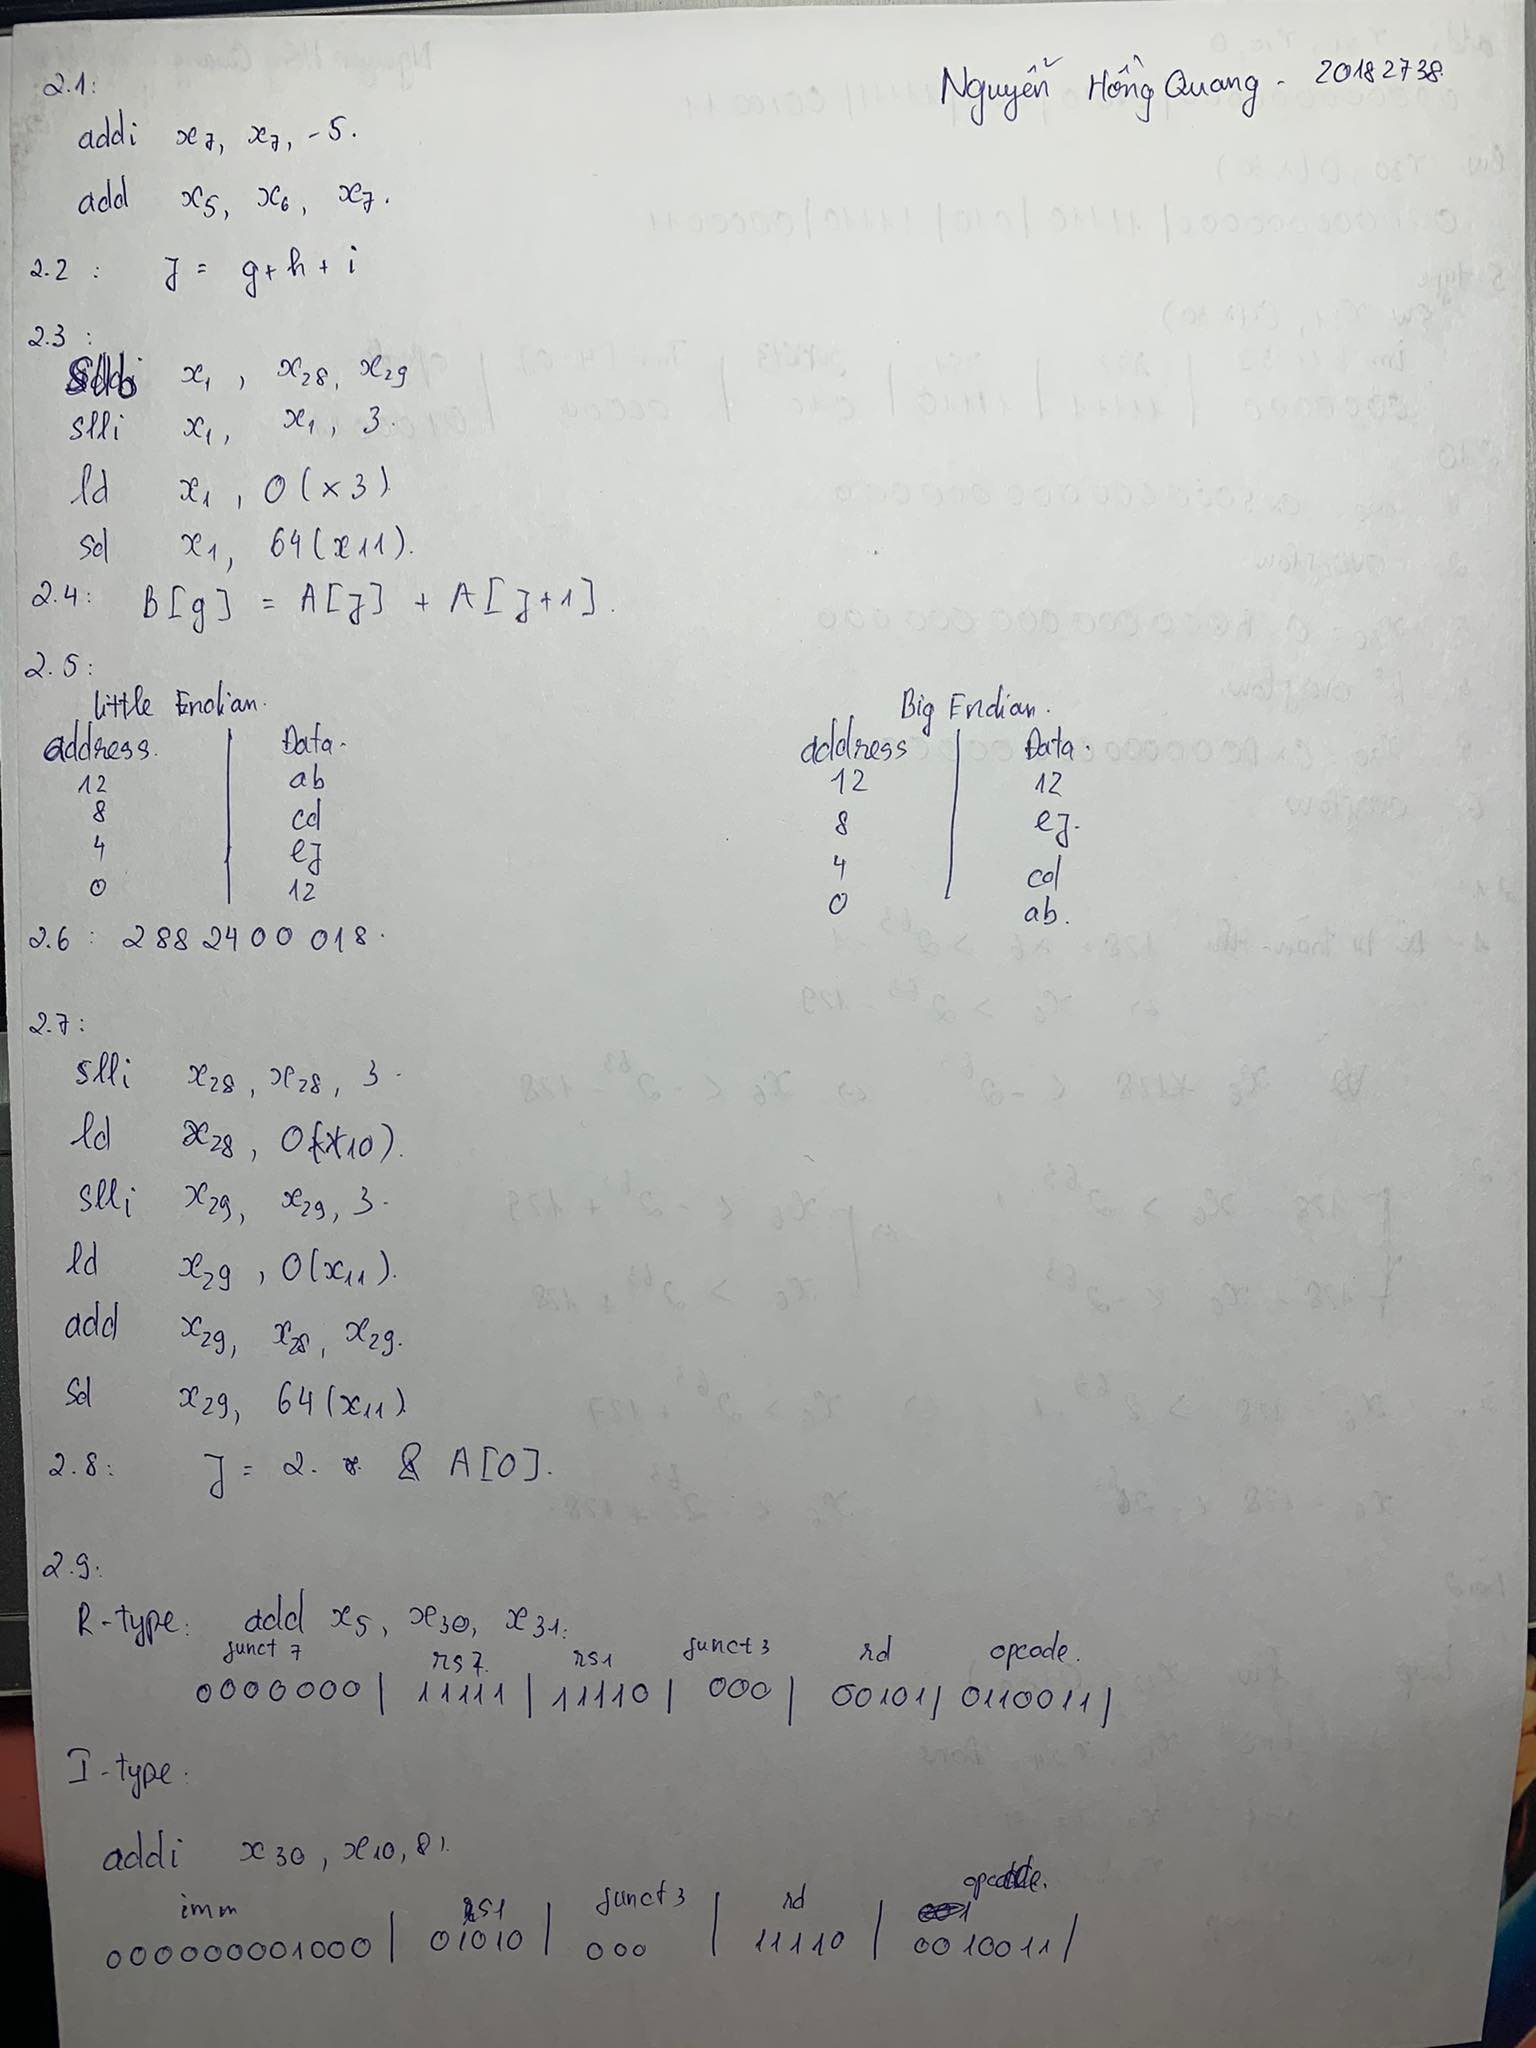 Nguyễn Hồng Quang - 20182738.
2.1:
addi x7, x7, -5.
add x5, x6, x7.
2.2 : f = g + h + i
2.3 :
x1, x28, x29
slli x1, x1, 3.
ld x1, 0(x3)
sd x1, 64(x11).
2.4: B[g] = A[f] + A[f+1].
2.5:
little Endian. Big Endian.
address. Data. address Data.
12 ab 12 12
8 cd 8 ef.
4 ef 4 cd
0 12 0 ab.
2.6 : 2882400018.
2.7:
slli x28, x28, 3.
ld x28, 0(x10).
slli x29, x29, 3.
ld x29, 0(x11).
add x29, x28, x29.
sd x29, 64(x11)
2.8: f = 2. * & A[0].
2.9:
R-type: add x5, x30, x31.
funct 7 rs2 rs1 funct 3 rd opcode.
0000000 | 11111 | 11110 | 000 | 00101 | 0110011 |
I-type:
addi x30, x10, 8
imm rs1 funct 3 rd opcode.
000000001000 | 01010 | 000 | 11110 | 0010011 |